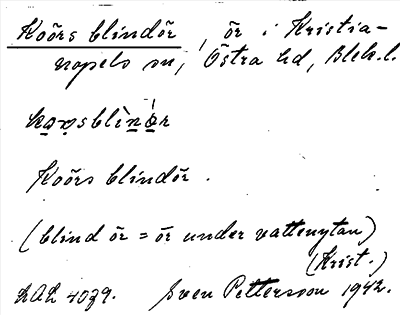 Koörs blindör, ör i Kristia-
nopels sn, Östra hd, Blek. l.
Koörs blindör.
(blind ör = ör under vattenytan)
(Krist.)
LAL 4039. Sven Pettersson 1942.